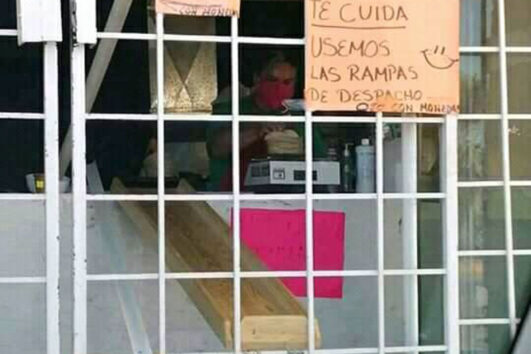 CON MONEDA
TE CUIDA
USEMOS
LAS RAMPAS
DE DESPACHO
CON MONEDA